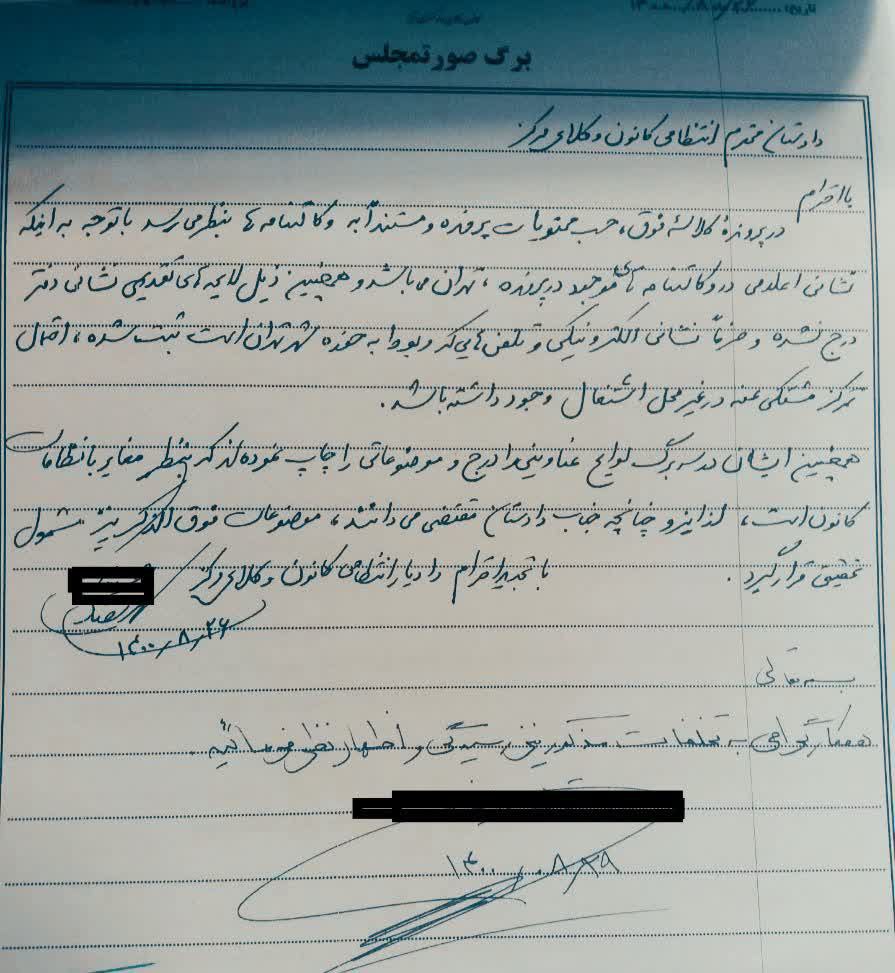 برگ صورتمجلس
دادستان محترم انتظامی کانون وکلای مرکز
با احترام
در پرونده کلاسه فوق، حسب محتویات پرونده و مستنداً به وکالتنامه ها بنظر می رسد با توجه به اینکه
نشانی اعلامی در وکالتنامه های موجود در پرونده، تهران می باشد و همچنین ذیل لایحه های تقدیمی نشانی دفتر
درج نشده و صرفاً نشانی الکترونیکی و تلفن هایی که مربوط به حوزه شهر تهران است ثبت شده، احتمال
تمرکز مشتکی عنه در غیر محل اشتغال وجود داشته باشد.
همچنین ایشان در سربرگ لوایح عناوینی را درج و موضوعاتی را چاپ نموده اند که بنظر مغایر با نظامات
کانون است، لذا اینرو چنانچه جناب دادستان مقتضی می دانند، موضوعات فوق الذکر نیز مشمول
تحقیق قرار گیرد. با تجدید احترام دادیار انتظامی کانون وکلای مرکز
۱۴۰۰/۸/۲۶
بسمه تعالی
همکار گرامی به تخلفات مذکور نیز رسیدگی و اظهار نظر فرمائید.
۱۴۰۰/۰۸/۲۹